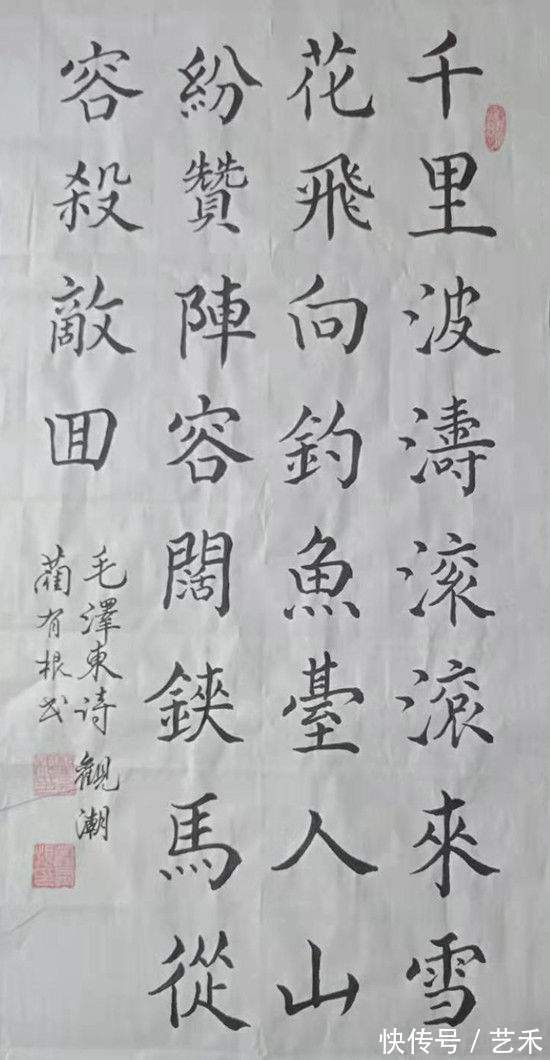 千里波濤滚滚來雪
花飛向釣魚臺人山
紛贊陣容闊鋏馬從
容殺敵囬
毛澤東诗觀潮
蔺有根书
快传号 / 艺禾